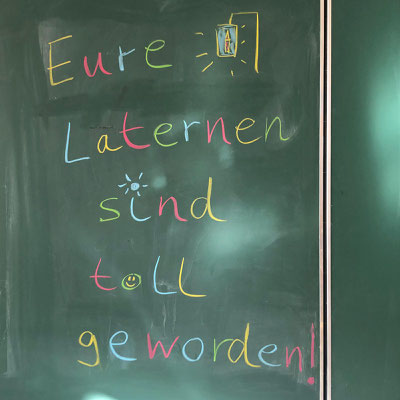 Eure
Laternen
sind
toll
geworden!